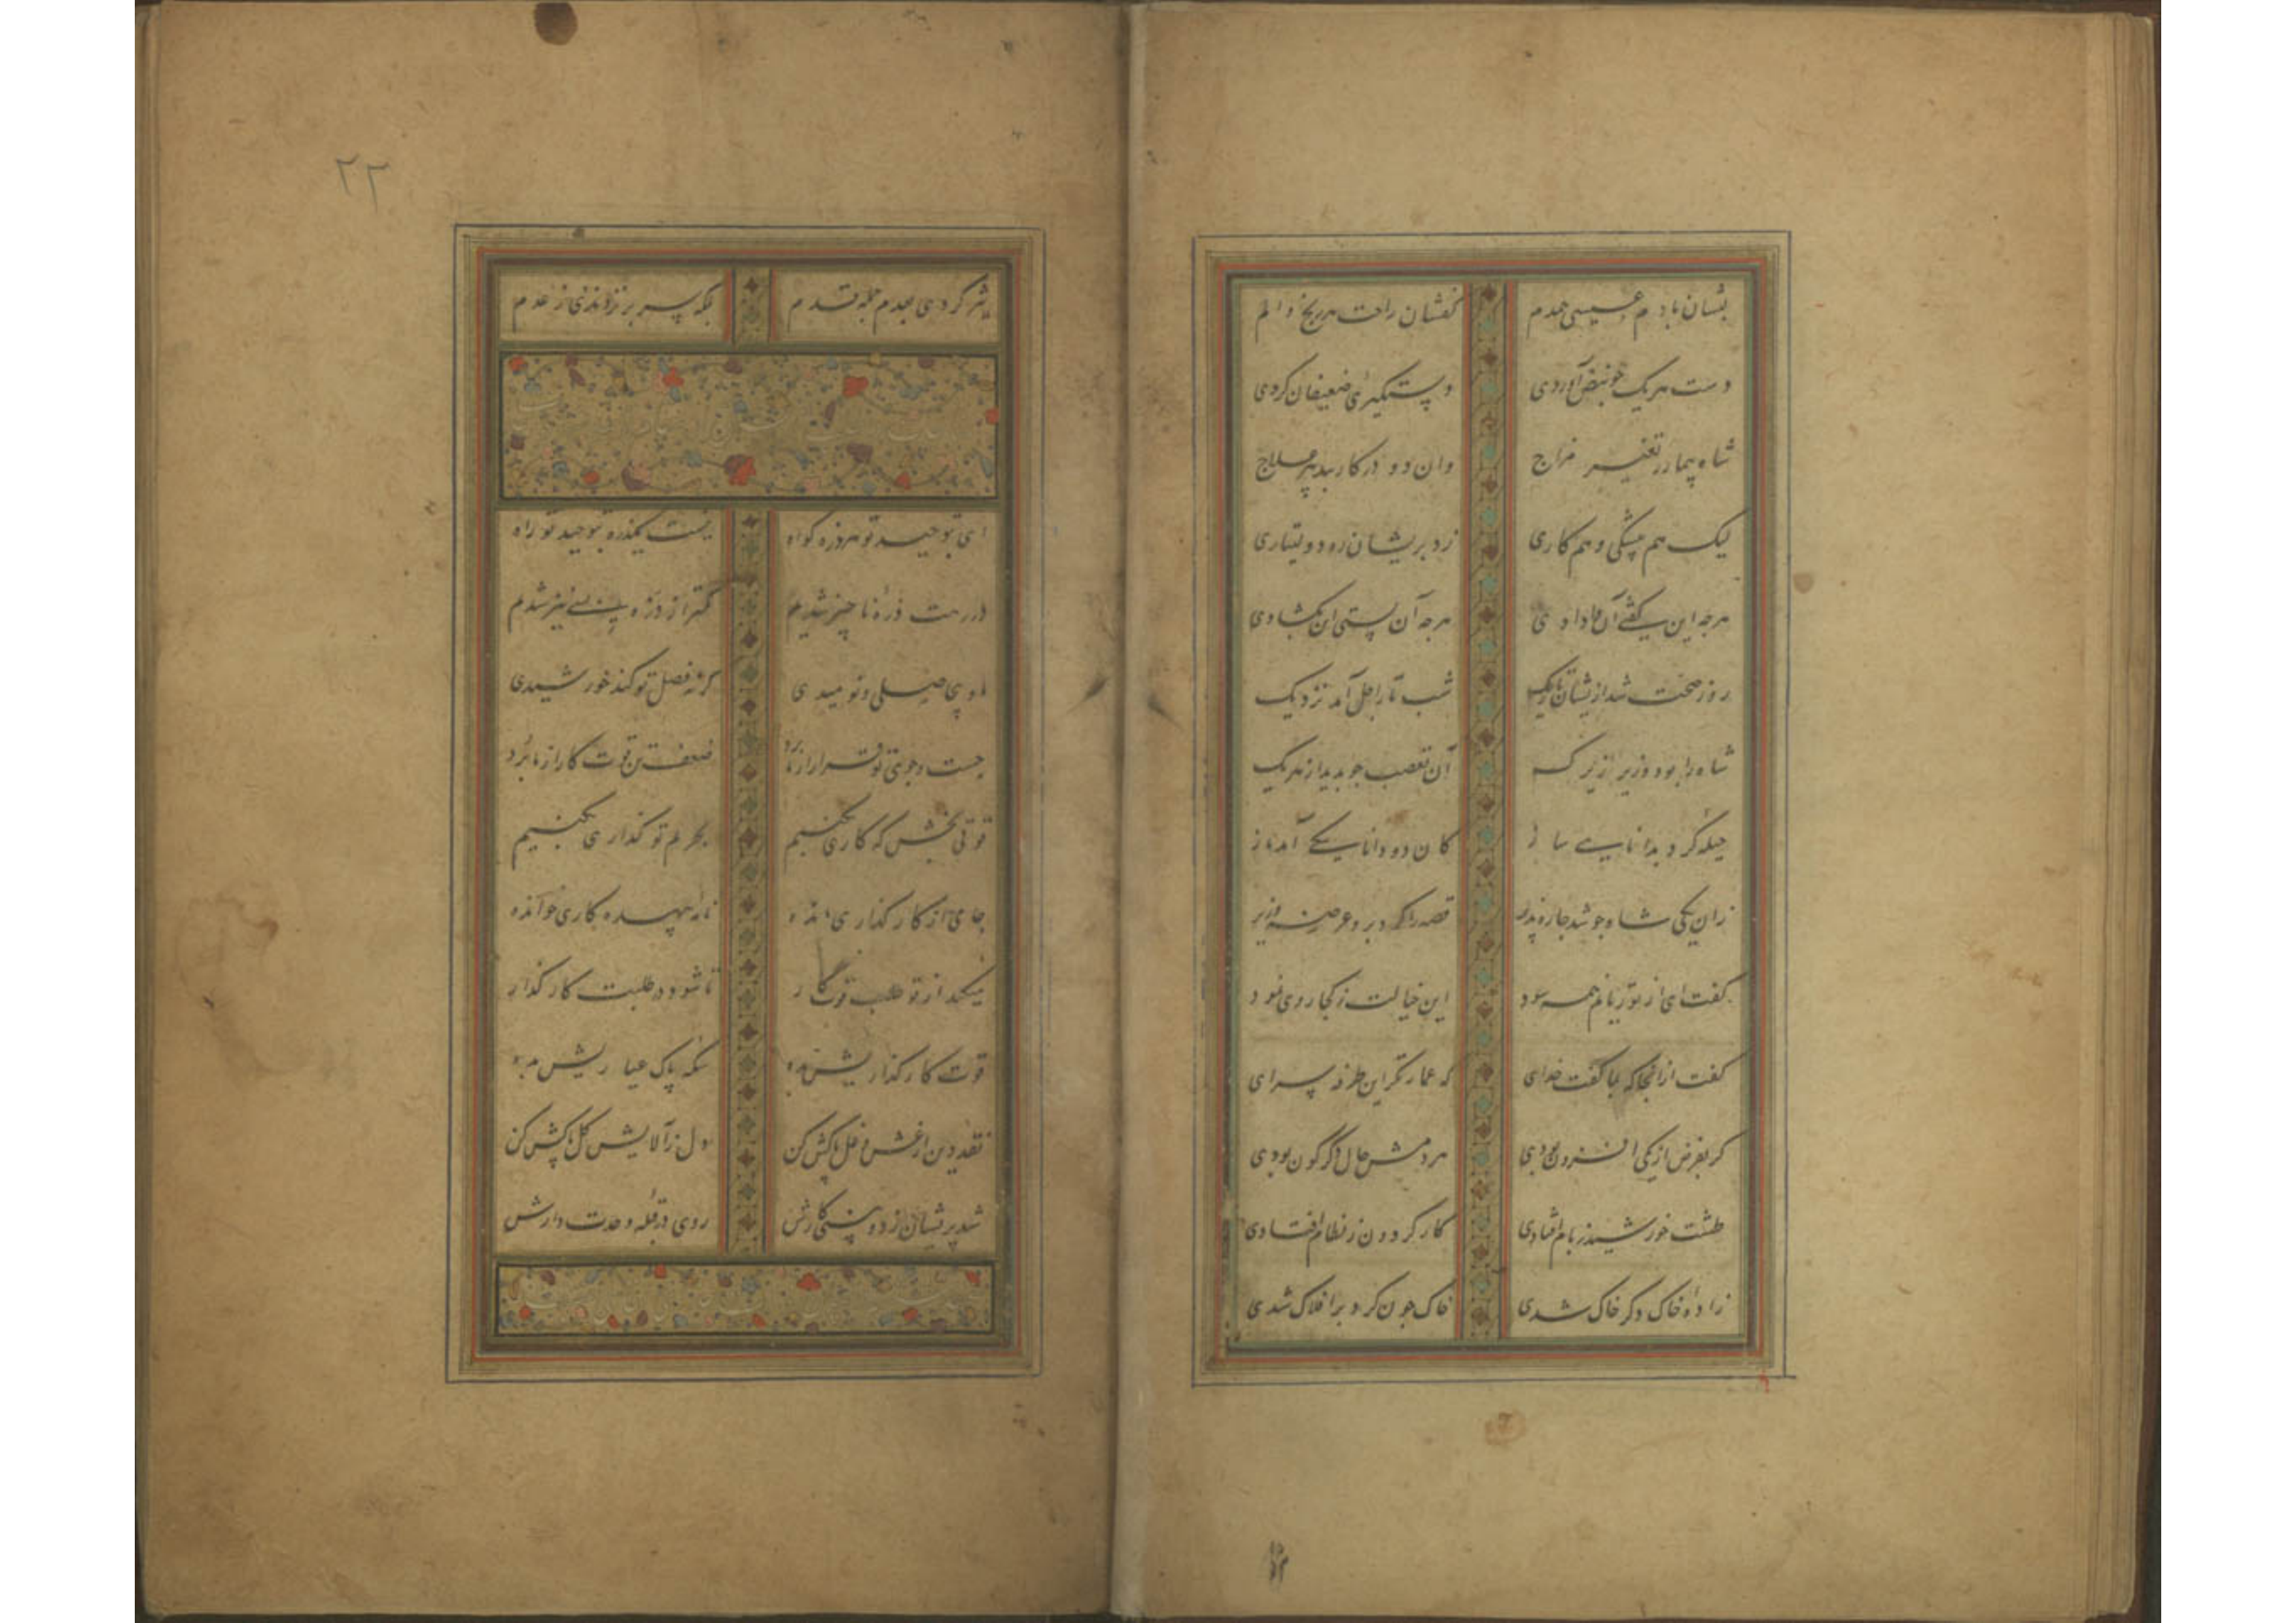 بنشان باد م عیسی همدم کفشان راحت هر رنج و الم
دست هر یک چو بنبض آوردی دستگیری ضعیفان کردی
شاه بیمار ز تغییر مزاج وان دو در کار بتدبیر علاج
لیک هم پیشگی و هم کاری زد بریشان ره دولتیاری
هرچه این بگفتی آن وادادی هرچه آن بستی این بگشادی
روز صحت شد ازیشان تاریک شب تار اجل آمد نزدیک
شاه را بود وزیر زیرک آن تعصب چو بدید از هر یک
حیله کرد بدانایی ساز کان دو دانا یکی آمد باز
زان یکی شاه چو شد چاره پذیر قصه را کرد برو عرضه وزیر
گفت ای از تو زیانم همه سود این خیالت ز کجا روی نمود
گفت از آنجا که بما گفت خدای که عمارتگر این طرفه سرای
گر بفرض از یکی افزون بودی هر دمش حال دگرگون بودی
طشت خورشید ز بام افتادی کار گردون ز نظام افتادی
زاده خاک دگر خاک شدی خاک چون گرد بر افلاک شدی
۲۲
پشر کردی بعدم جمله قدم بلکه سر بر نزدندی ز عدم
ای بتوحید تو هر ذره گواه نیست یکذره بتوحید تو راه
در رهت ذره ناچیز شدیم کمتر از ذره بسی نیز شدیم
ما و بی حاصلی و نومیدی گر نه فضل تو کند خورشیدی
جست و جوی تو قرار از ما برد ضعف تن قوت کار از ما برد
قوتی بخش که کاری بکنیم بحریم تو گذاری بکنیم
جامی از کارگذاری مانده نامه عهده کاری خوانده
میکند از تو طلب قوت کار تا شود در طلبت کارگذار
قوت کارگذاریش بده سکه پاک عیاریش بده
نقد دین از غش و غل پاکش کن دل ز آلایش گل پاکش کن
شد پریشان ز دو بینی کارش روی در قبله وحدت دارش